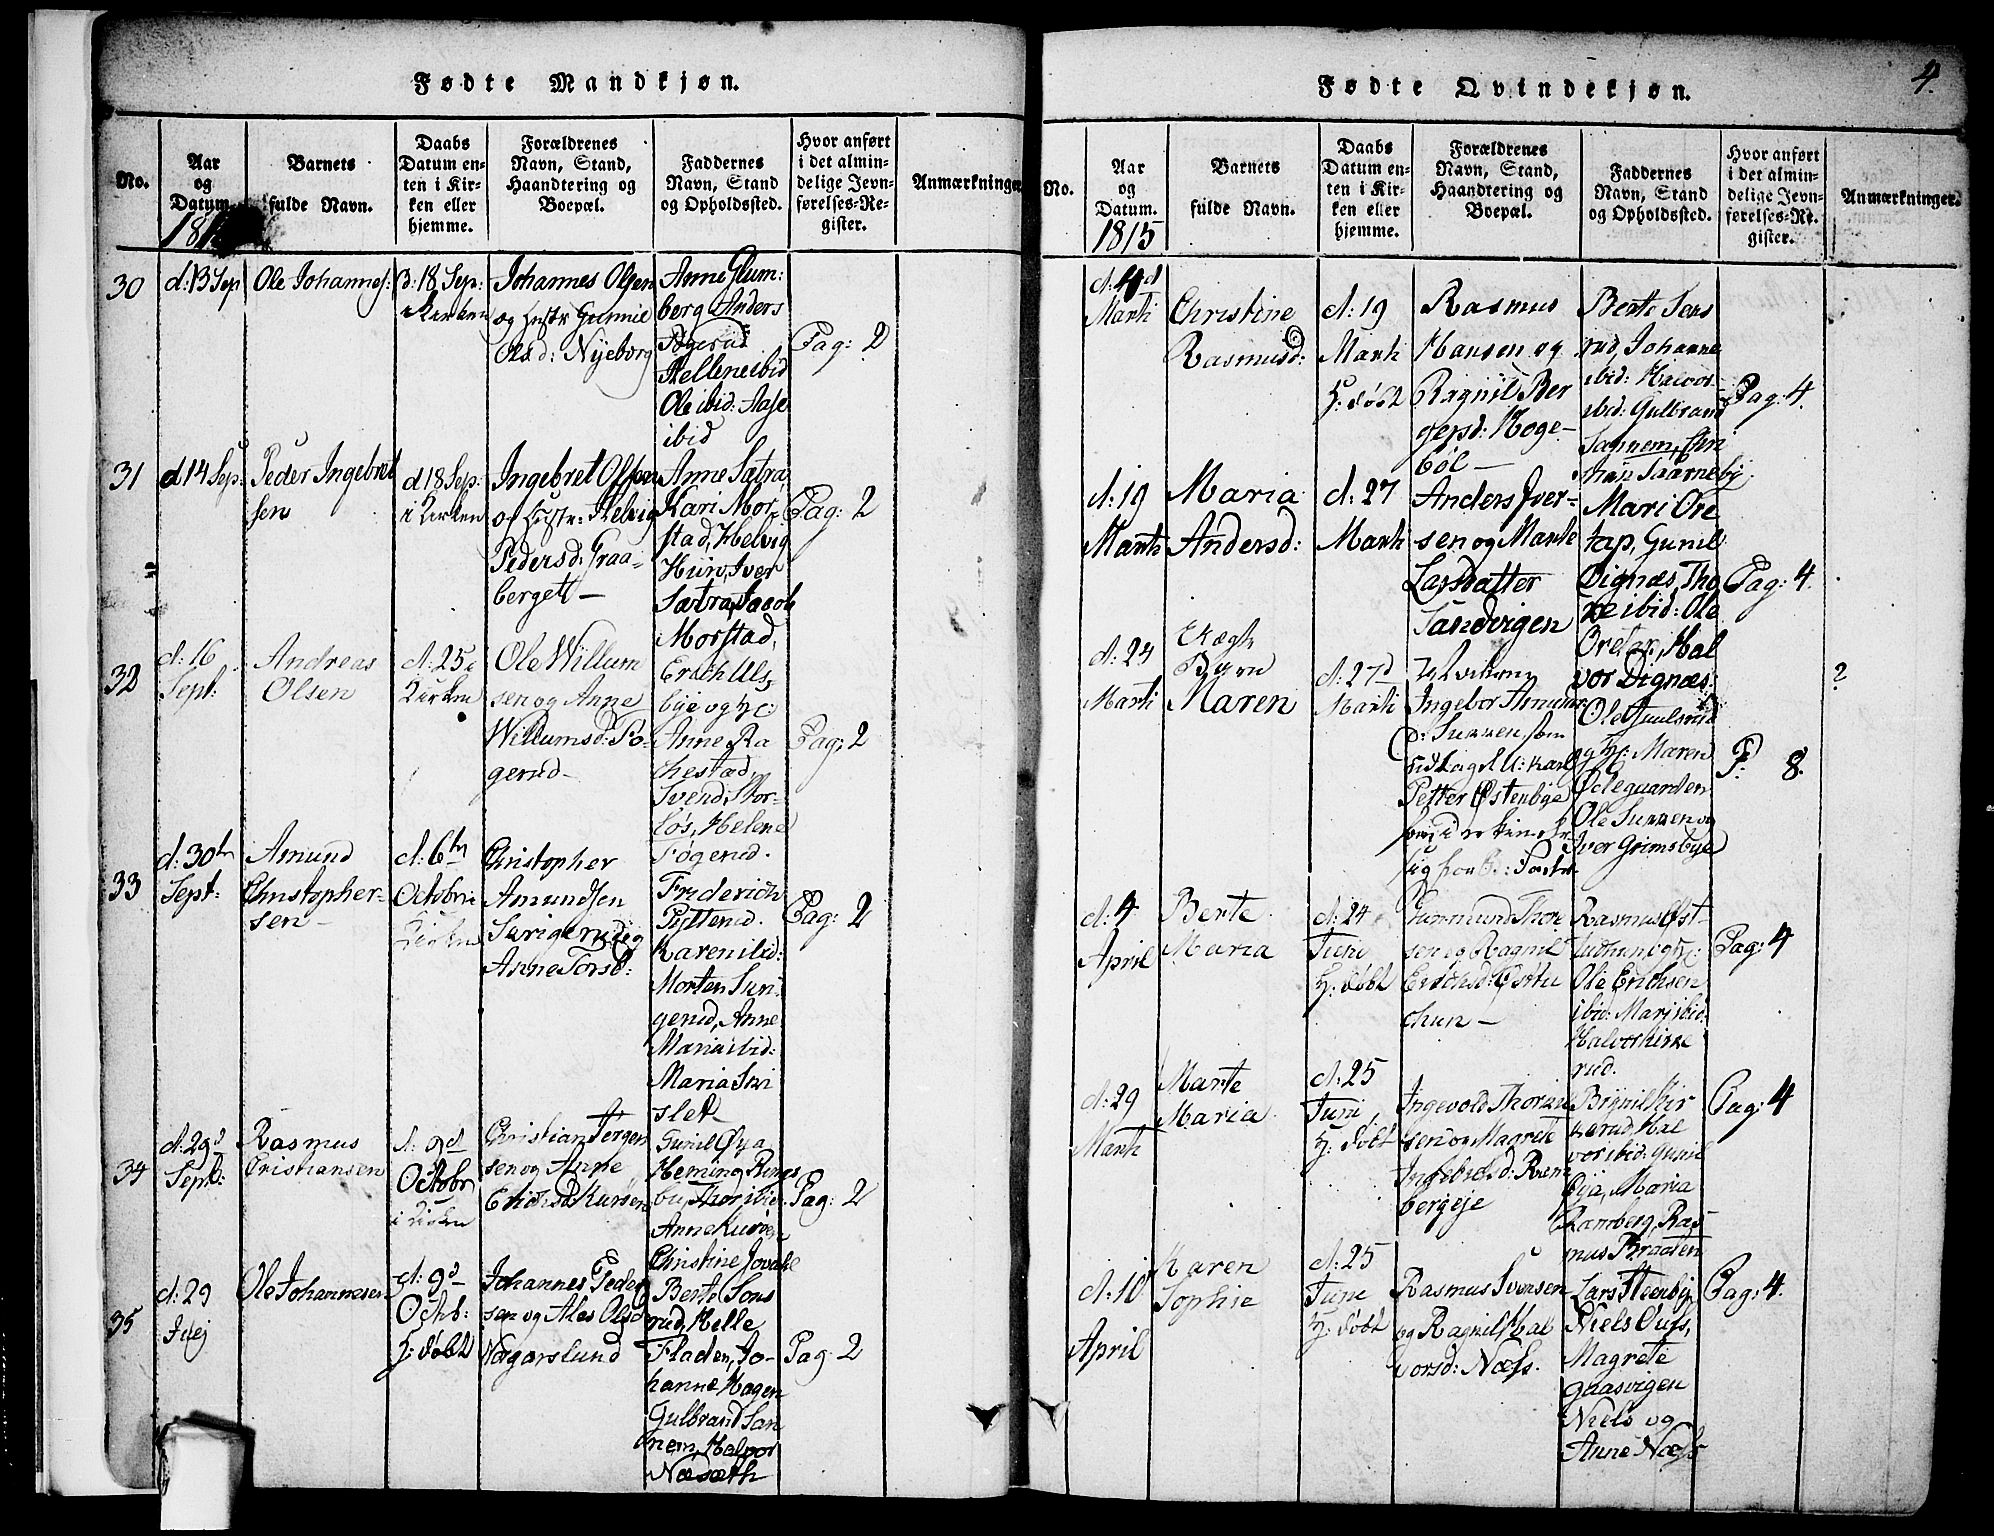 Fødte Mandkjøn.
No.
Aar
og
Datum.
181
Barnets
fulde Navn.
Daabs
Datum en-
ten i Kir-
ken eller
hjemme.
Forældrenes
Navn, Stand,
Haandtering og
Boepæl.
Faddernes
Navn, Stand
og Opholdssted.
Hvor anført
i det almin-
delige Jevn-
førelses-Re-
gister.
Anmærkninger
30
d: 13 Sep
Ole Johannes:
d: 18 Sep:
i Kirken
Johannes Olsen
og Hustr Gunnil
Olsd: Nyeborg
Anne Glum:
berg Anders
Pogerud
Hellene ibid
Ole ibid: Aase
ibid
Pag: 2
31
d 14 Sep:
Peder Ingebret
sen
d 18 Sep:
i Kirken
Ingebret Olssen
og Hustr: Helvig
Pedersd: Graa-
berget —
Anne Sætra,
Kari Mor-
stad, Helvig
Hiin, Iver
Sætra, Jacob
Morstad,
Pag: 2
32
d: 16
Sept:
Andreas
Olsen
d: 25 i
Kirken
Ole Willum
sen og Anne
Willumsd: Po-
gerud —
Erich Uls-
bye og H:
Anne Ra
chestad,
Svend Skor-
løs, Helene
Pogerud.
Pag: 2
33
d: 30th
Sept:
Amund
Christopher-
sen —
d: 6th
Octobr i
Kirken
Christopher
Amundsen
Sørigerud og
Anne Torsd:
Friderich
Pytterud.
Karen ibid:
Morten Sun-
gerud, Anne
Maria ibid:
Maria Sri
slet
Pag: 2
34
d: 29d
Sept:
Rasmus
Cristiansen
d: 9d
Octobr
i Kirken
Christian Jørgen
sen og Anne
Erichsd Kursen
Gunil Øya
Heming Rings
bu, Thor ibid
Anne Kursen
Christine Jovahl
Pag: 2
35
d: 29
Juej
Ole Johannesen
d: 9d
Octb:
H: døbt
Johannes Peder
sen og Ales Olsd
Nagarslund
Berte Sons
rud, Helle
Fladen, Jo-
hanne Hagen
Gulbrand San
nem, Halvor
Næsæth
Pag: 2
Fødte Qvindekjøn.
4.
No.
Aar
og
Datum.
1815
Barnets
fulde Navn.
Daabs
Datum en-
ten i Kir-
ken eller
hjemme.
Forældrenes
Navn, Stand,
Haandtering og
Boepæl.
Faddernes
Navn, Stand
og Opholdssted.
Hvor anført
i det almin-
delige Jevn-
førelses-Re-
gister.
Anmærkninger.
d: 4d
Marti
Christine
Rasmusd:
d: 19
Marti
H: døbt
Rasmus
Hansen og
Ragnil Ber
gersd: Hoge-
böl —
Berte Sons
rud, Johanne
ibid: Halvor
ibid: Gulbrand
Sannem, Chri
stian Taarneby
Pag: 4.
d: 19
Marti
Maria
Andersd:
d: 27
Marti
Anders Iver-
sen og Marte
Larsdatter
Sandvigen
Mari Ore
tap, Gunil
Dignæs, Tho
re ibid: Ole
Oretap, Hal
vor Dignæs:
Pag: 4.
d: 24
Marti
Uægte
Byrn
Maren
d: 27d
Marti
Ingebor
som
udlagt U: karl
Petter Østenbye
Ole Juulsrud
og H: Maren
Ødeguarden
Ole og
Iver Grimsbye
P: 8.
?
d: 4
April
Berte
Maria
d: 24
Juni
H: døbt
Gunmund Thore
sen og Ragnil
Erichsd: Østtu
chun —
Rasmus Øst
og H:
Ole Erichsen
ibid: Mari ibid:
Halvor Kirke
rud.
Pag: 4
d: 29
Marti
Marte
Maria
d: 25
Juni
H: døbt
Ingevold Thorsen
sen og Magrete
Ingebretsd: Ram
bergeje
Bignil Kir
kerud Hal
vor ibid: Gunil
Øja, Maria
Ramberg, Ras
mus Braaten
Pag: 4
d: 10
April
Karen
Sophie
d: 25
Juni
H: døbt
Rasmus Svensen
og Ragnil Hal
vorsd: Næss.
Lars Steenby
Niels Qufs,
Magrete
Gaasvigen
Niels og
Anne Næss
Pag: 4.